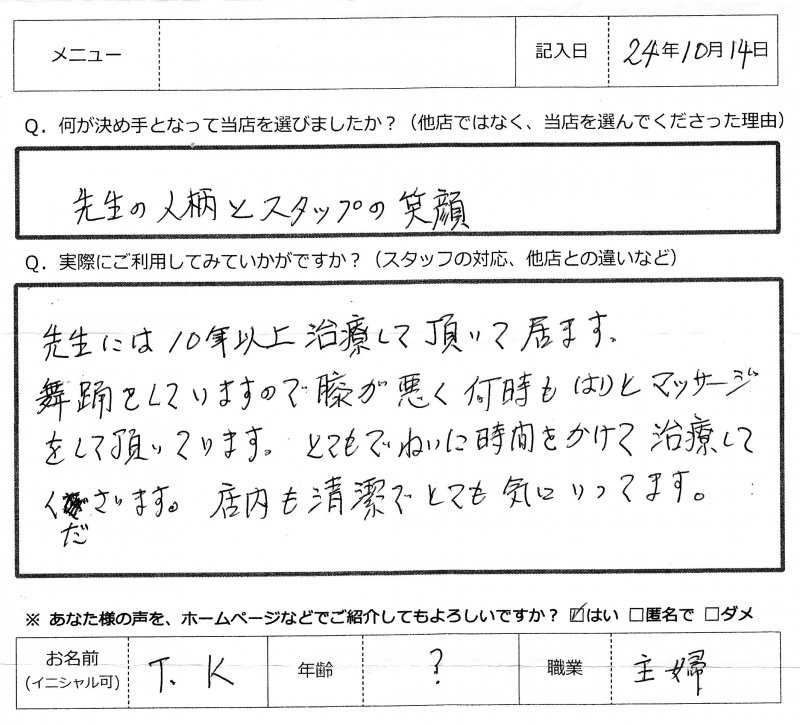 メニュー 記入日 24年10月14日
Q．何が決め手となって当店を選びましたか？（他店ではなく、当店を選んでくださった理由）
先生の人柄とスタップの笑顔
Q．実際にご利用してみていかがですか？（スタッフの対応、他店との違いなど）
先生には10年以上治療して頂いて居ます。
舞踊をしていますので膝が悪く何時もはりとマッサージ
をして頂いています。とてもでねいに時間をかけて治療して
くださいます。店内も清潔でとても気に入ってます。
※ あなた様の声を、ホームページなどでご紹介してもよろしいですか？ ☑はい □匿名で □ダメ
お名前
(イニシャル可) T. K 年齢 ? 職業 主婦